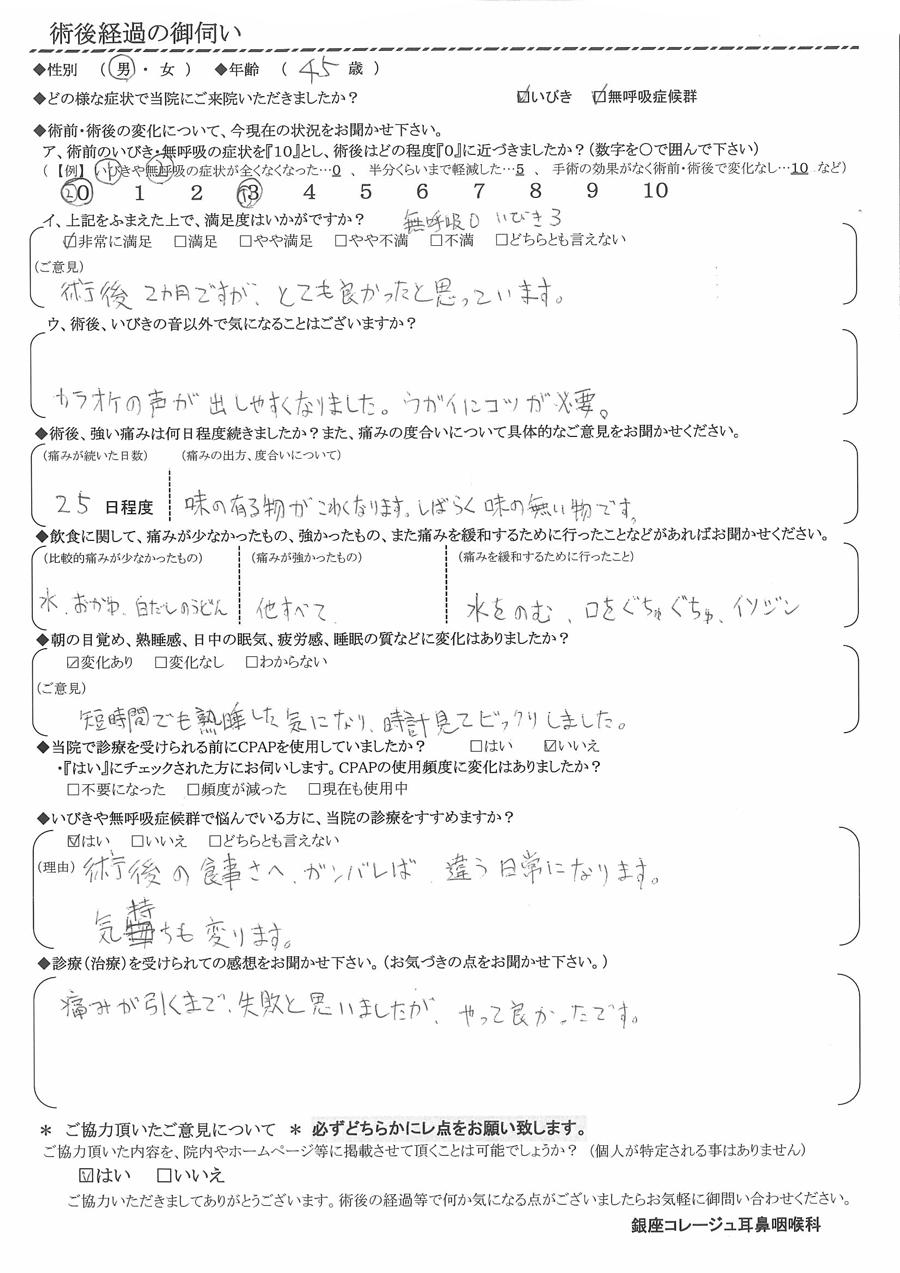 術後経過の御伺い
◆性別 （ 男 ・ 女 ） ◆年齢 （ 45 歳 ）
◆どの様な症状で当院にご来院いただきましたか？ ☑いびき ☑無呼吸症候群
◆術前・術後の変化について、今現在の状況をお聞かせ下さい。
ア、術前のいびき・無呼吸の症状を『10』とし、術後はどの程度『0』に近づきましたか？（数字を○で囲んで下さい）
（ 【例】 いびきや無呼吸の症状が全くなくなった…0 、 半分くらいまで軽減した…5 、 手術の効果がなく術前・術後で変化なし…10 など）
0 1 2 3 4 5 6 7 8 9 10
イ、上記をふまえた上で、満足度はいかがですか？ 無呼吸0 いびき3
☑非常に満足 □満足 □やや満足 □やや不満 □不満 □どちらとも言えない
（ご意見）
術後 2カ月ですが、とても良かったと思っています。
ウ、術後、いびきの音以外で気になることはございますか？
カラオケの声が出しやすくなりました。ウガイにコツが必要。
◆術後、強い痛みは何日程度続きましたか？また、痛みの度合いについて具体的なご意見をお聞かせください。
（痛みが続いた日数） （痛みの出方、度合いについて）
25 日程度 味の有る物がこわくなります。しばらく味の無い物です。
◆飲食に関して、痛みが少なかったもの、強かったもの、また痛みを緩和するために行ったことなどがあればお聞かせください。
（比較的痛みが少なかったもの） （痛みが強かったもの） （痛みを緩和するために行ったこと）
水、おかゆ、白だしのうどん 他すべて 水をのむ、口をぐちゅぐちゅ、イソジン
◆朝の目覚め、熟睡感、日中の眠気、疲労感、睡眠の質などに変化はありましたか？
☑変化あり □変化なし □わからない
（ご意見）
短時間でも熟睡した気になり、時計見てビックリしました。
◆当院で診療を受けられる前にCPAPを使用していましたか？ □はい ☑いいえ
・『はい』にチェックされた方にお伺いします。CPAPの使用頻度に変化はありましたか？
□不要になった □頻度が減った □現在も使用中
◆いびきや無呼吸症候群で悩んでいる方に、当院の診療をすすめますか？
☑はい □いいえ □どちらとも言えない
（理由） 術後の食事さへ、ガンバレば、違う日常になります。
気持ちも変ります。
◆診療（治療）を受けられての感想をお聞かせ下さい。（お気づきの点をお聞かせ下さい。）
痛みが引くまで、失敗と思いましたが、やって良かったです。
＊ ご協力頂いたご意見について ＊ 必ずどちらかにレ点をお願い致します。
ご協力頂いた内容を、院内やホームページ等に掲載させて頂くことは可能でしょうか？ （個人が特定される事はありません）
☑はい □いいえ
ご協力いただきましてありがとうございます。術後の経過等で何か気になる点がございましたらお気軽に御問い合わせください。
銀座コレージュ耳鼻咽喉科